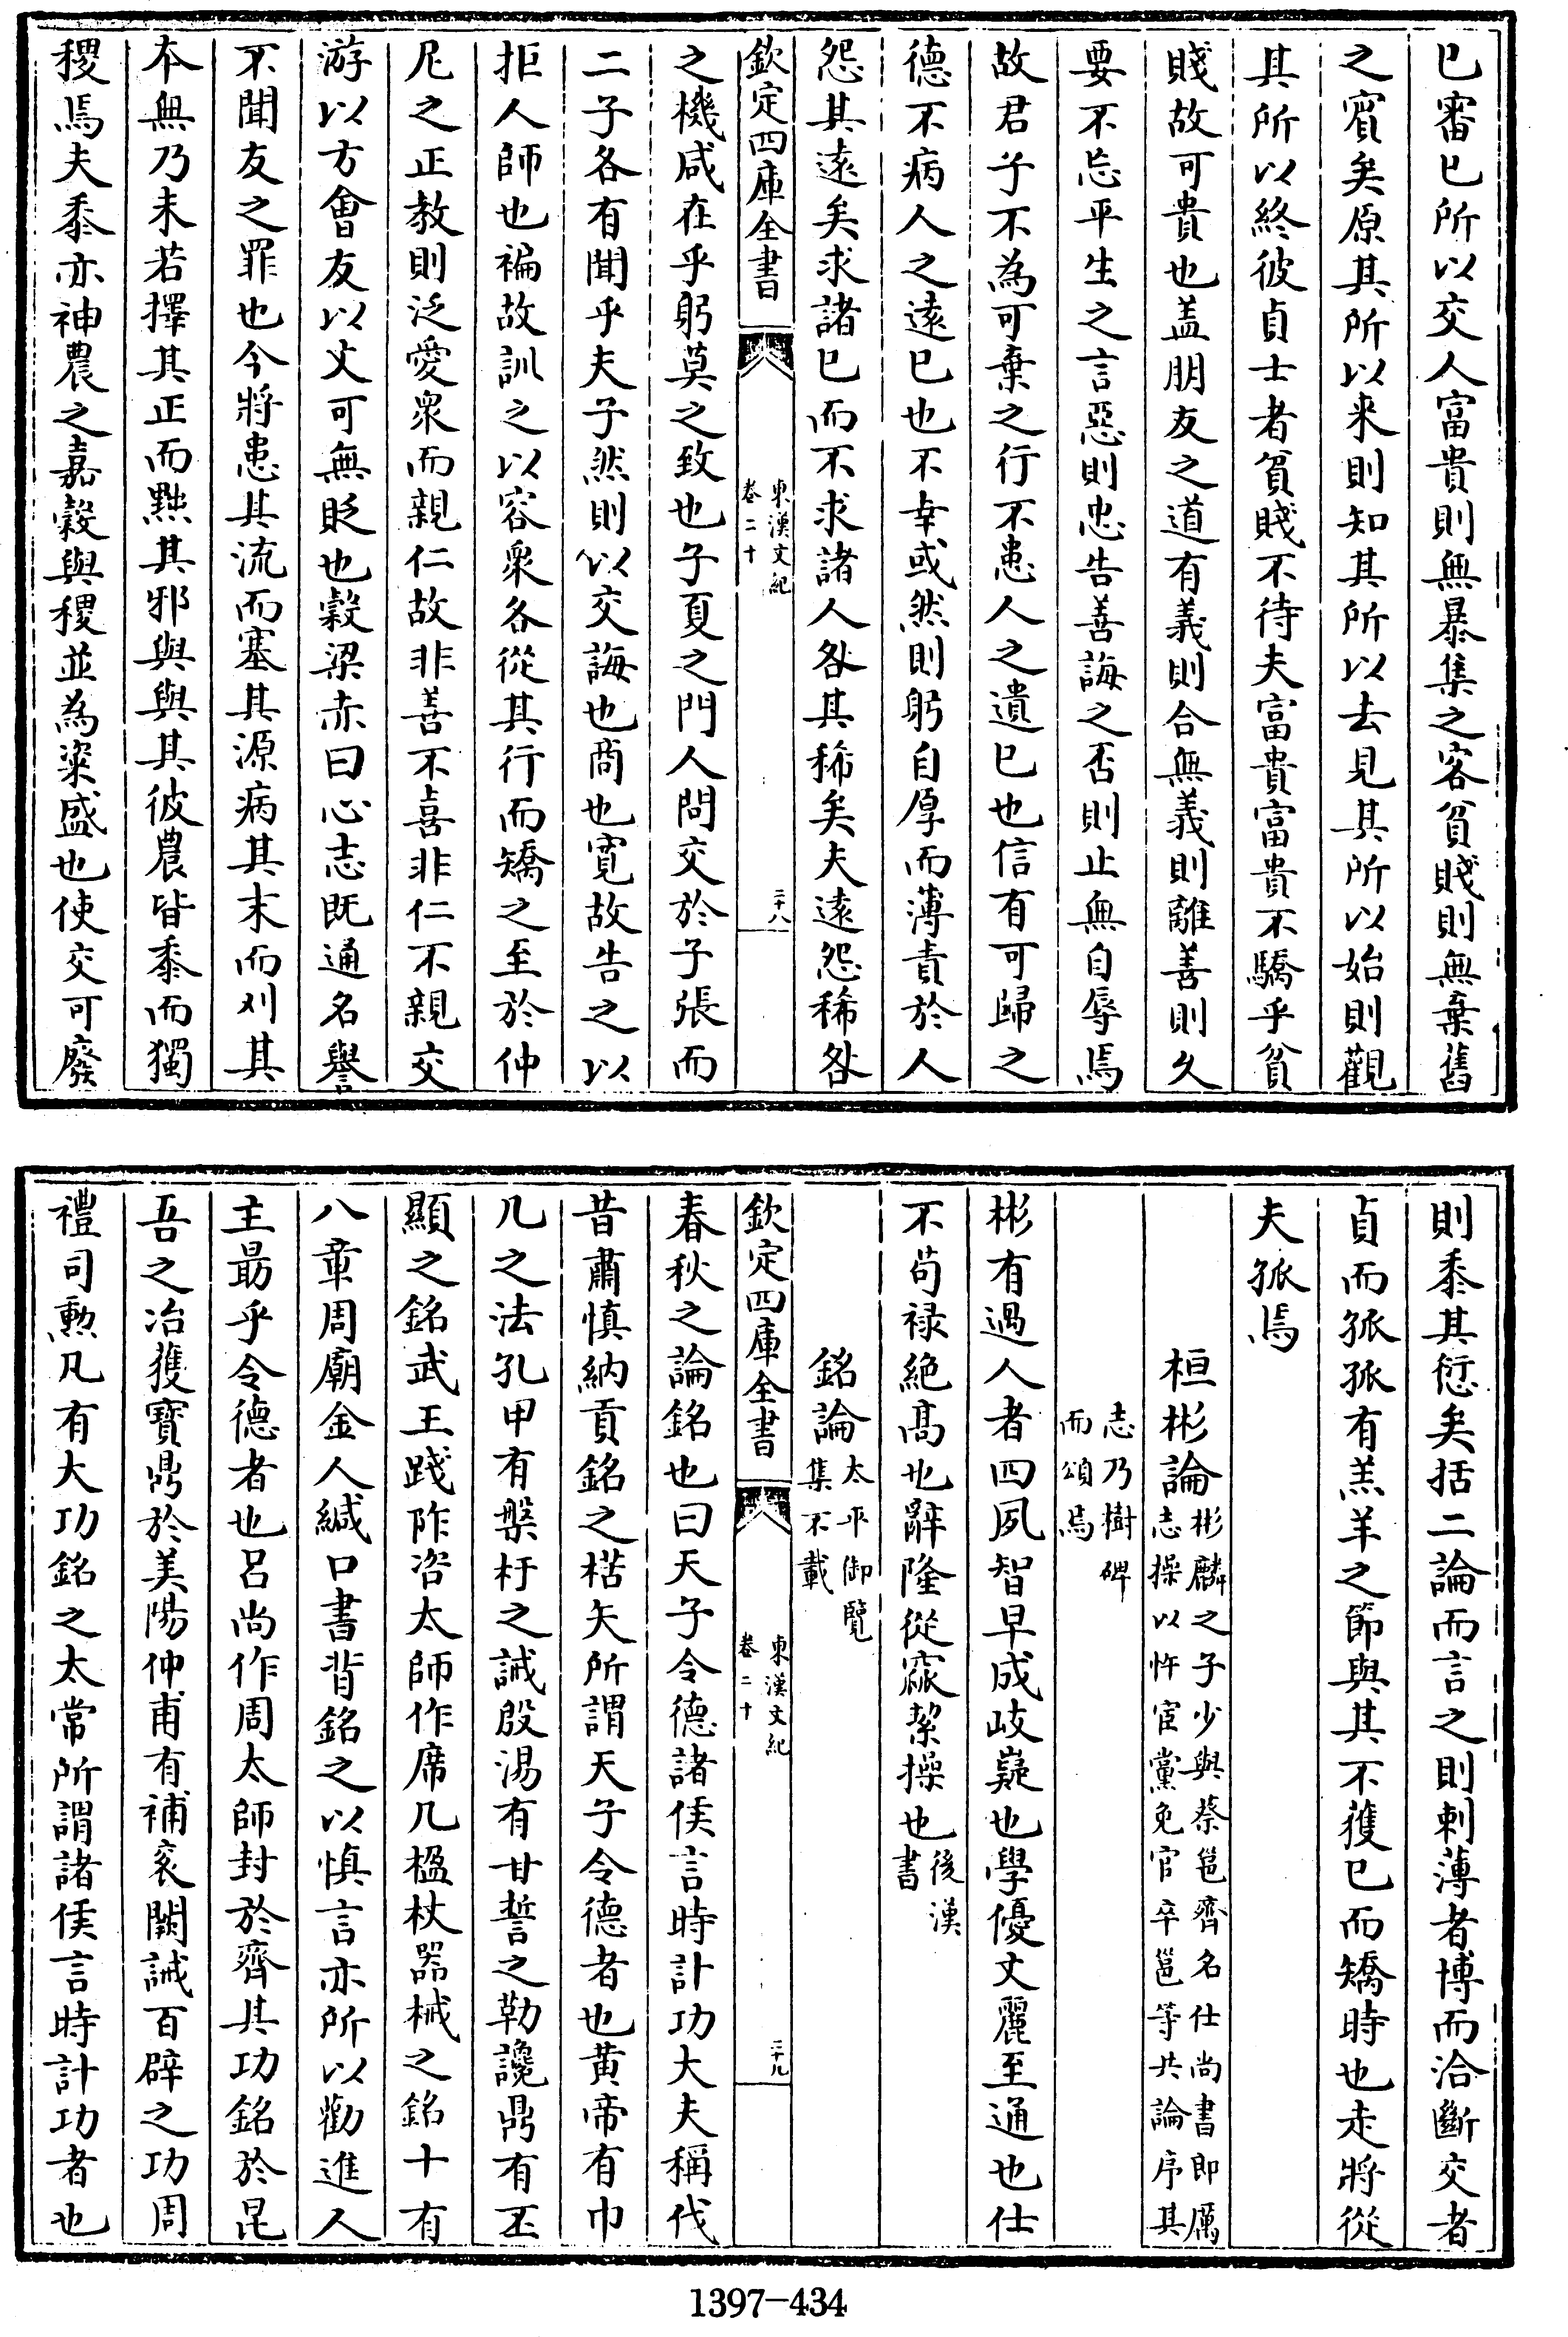 已審己所以交人富貴則無暴集之客貧賤則無棄舊
之賓矣原其所以来則知其所以去見其所以始則觀
其所以終彼貞士者貧賤不待夫富貴富貴不驕乎貧
賤故可貴也盖朋友之道有義則合無義則離善則久
要不忘平生之言惡則忠告善誨之否則止無自辱焉
故君子不為可棄之行不患人之遺己也信有可歸之
德不病人之遠已也不幸或然則躬自厚而薄責於人
怨其遠矣求諸已而不求諸人咎其稀矣夫遠怨稀咎
欽定四庫全書
東漢文紀
卷二十
二十八
之機咸在乎躬莫之致也子夏之門人問交於子張而
二子各有聞乎夫子然則以交誨也商也寛故告之以
拒人師也褊故訓之以容衆各從其行而矯之至於仲
尼之正教則泛愛衆而親仁故非善不喜非仁不親交
游以方會友以文可無貶也穀梁赤曰心志既通名譽
不聞友之罪也今將患其流而塞其源病其末而刈其
本無乃未若擇其正而黜其邪與與其彼農皆黍而獨
稷焉夫黍亦神農之嘉穀與稷並為粢盛也使交可廢
則黍其愆矣括二論而言之則刺薄者博而洽斷交者
貞而孤孤有羔羊之節與其不獲已而矯時也走將從
夫孤焉
桓彬論
彬麟之子少與蔡邕齊名仕尚書郎厲
志操以忤宦黨免官卒邕等共論序其
志乃樹碑
而頌焉
彬有過人者四夙智早成岐嶷也學優文麗至通也仕
不苟禄絶髙也辭隆從窳絜操也
後漢
書
銘論
太平御覽
集不載
欽定四庫全書
東漢文紀
卷二十
二十九
春秋之論銘也曰天子令德諸侯言時計功大夫稱伐
昔肅慎納貢銘之楛矢所謂天子令德者也黄帝有巾
几之法孔甲有槃杅之誡殷湯有甘誓之勒讒鼎有丕
顯之銘武王踐阼咨太師作席几楹杖器械之銘十有
八章周廟金人緘口書背銘之以慎言亦所以勸進人
主朂乎令德者也吕尚作周太師封於齊其功銘於昆
吾之冶獲寶鼎於美陽仲甫有補衮闕誡百辟之功周
禮司勲凡有大功銘之太常所謂諸侯言時計功者也
1397-434